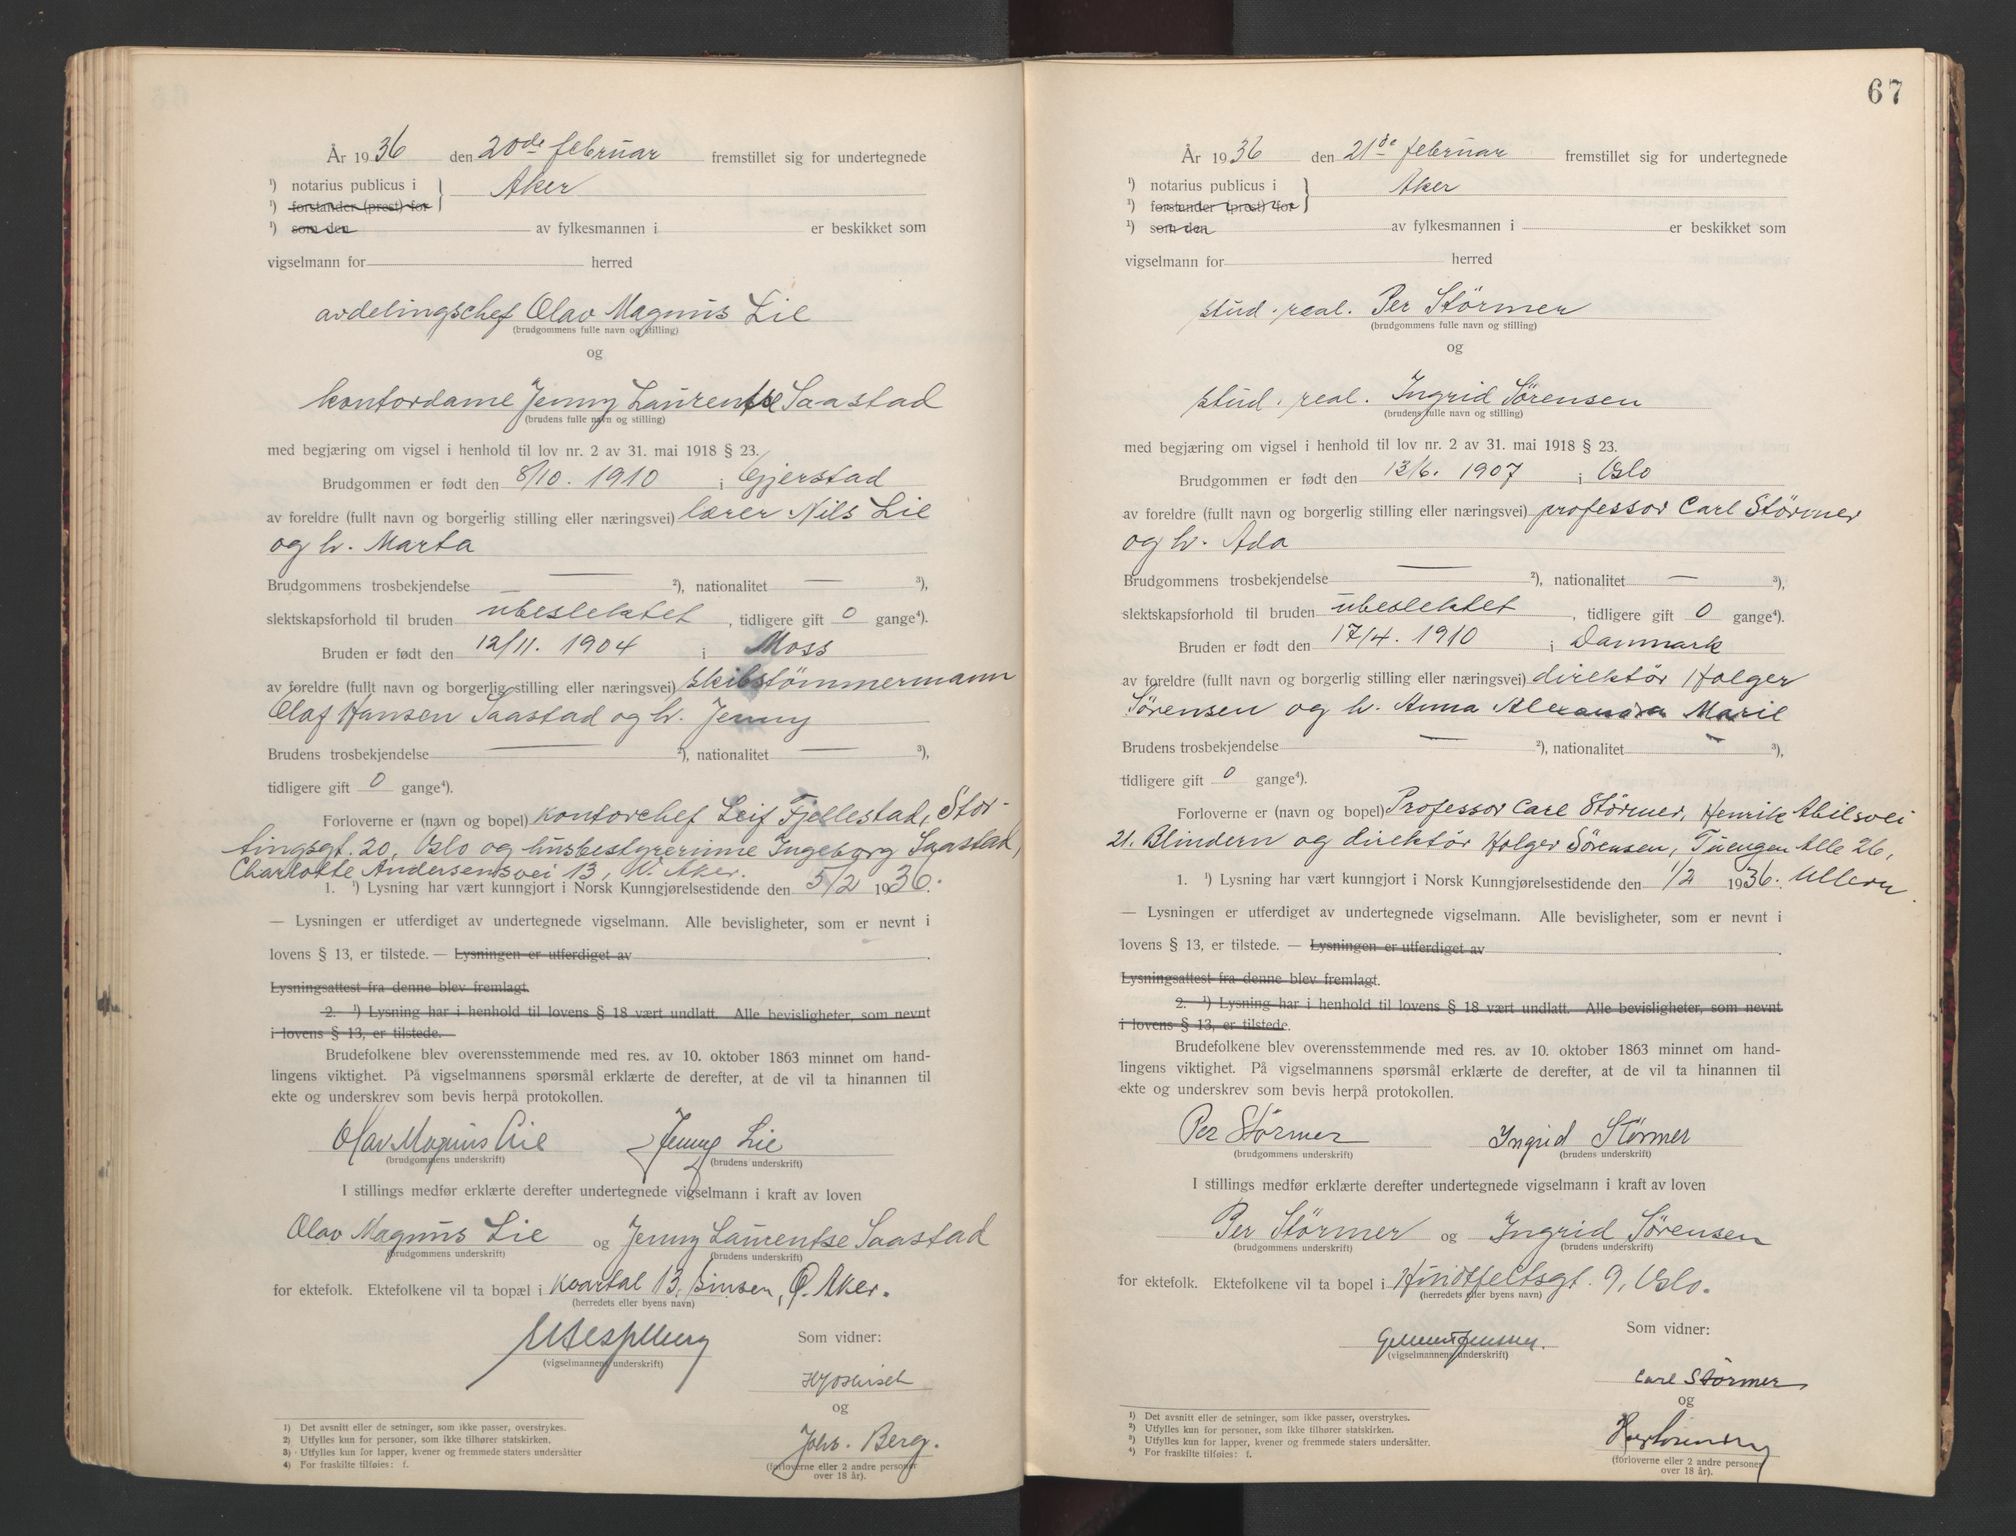 År 1936 den 20de februar fremstillet sig for undertegnede
¹) notarius publicus i } Aker
¹) forstander (prest) for
¹) som den av fylkesmannen i er beskikket som
vigselmann for herred
avdelingschef Olav Magnus Lie
(brudgommens fulle navn og stilling)
og
kontordame Jenny Laurentse Saastad
(brudens fulle navn og stilling)
med begjæring om vigsel i henhold til lov nr. 2 av 31. mai 1918 § 23.
Brudgommen er født den 8/10. 1910 i Gjerstad
av foreldre (fullt navn og borgerlig stilling eller næringsvei) lærer Nils Lie
og h. Marta
Brudgommens trosbekjendelse — ²), nationalitet — ³),
slektskapsforhold til bruden ubeslektet, tidligere gift 0 gange⁴).
Bruden er født den 12/11. 1904 i Moss
av foreldre (fullt navn og borgerlig stilling eller næringsvei) skibstömmermann
Olaf Hansen Saastad og h. Jenny
Brudens trosbekjendelse — ²), nationalitet — ³),
tidligere gift 0 gange⁴).
Forloverne er (navn og bopel) kontorchef Leif Fjellestad, Stor-
tingsgt. 20, Oslo og husbestyrerinne Ingeborg Saastad,
Charlotte Andersensvei 13, V. Aker.
1. ¹) Lysning har vært kunngjort i Norsk Kunngjørelsestidende den 5/2 1936.
— Lysningen er utferdiget av undertegnede vigselmann. Alle bevisligheter, som er nevnt i
lovens § 13, er tilstede. — Lysningen er utferdiget av
Lysningsattest fra denne blev fremlagt.
2. ¹) Lysning har i henhold til lovens § 18 vært undlatt. Alle bevisligheter, som nevnt
i lovens § 13, er tilstede.
Brudefolkene blev overensstemmende med res. av 10. oktober 1863 minnet om hand-
lingens viktighet. På vigselmannens spørsmål erklærte de derefter, at de vil ta hinannen til
ekte og underskrev som bevis herpå protokollen.
Olav Magnus Lie Jenny Lie
(brudgommens underskrift) (brudens underskrift)
I stillings medfør erklærte derefter undertegnede vigselmann i kraft av loven
Olav Magnus Lie og Jenny Laurentse Saastad
(brudgommens underskrift) (brudens underskrift)
for ektefolk. Ektefolkene vil ta bopæl i kvartal 13, Sinsen, Ø. Aker.
(herredets eller byens navn)
Som vidner:
(vigselmannens underskrift)
og
Johs. Berg.
(forloverne eller 2 andre personer
over 18 år).
1) Det avsnitt eller de setninger, som ikke passer, overstrykes.
2) Utfylles kun for personer, som ikke tilhører statskirken.
3) Utfylles kun for lapper, kvener og fremmede staters undersåtter
4) For fraskilte tilføies: f.
67
År 1936 den 21de februar fremstillet sig for undertegnede
¹) notarius publicus i } Aker
¹) forstander (prest) for
¹) som den av fylkesmannen i er beskikket som
vigselmann for herred
stud. real. Per Störmer
(brudgommens fulle navn og stilling)
og
stud. real. Ingrid Sörensen
(brudens fulle navn og stilling)
med begjæring om vigsel i henhold til lov nr. 2 av 31. mai 1918 § 23.
Brudgommen er født den 13/6. 1907 i Oslo
av foreldre (fullt navn og borgerlig stilling eller næringsvei) professor Carl Störmer
og h. Ada
Brudgommens trosbekjendelse — ²), nationalitet — ³),
slektskapsforhold til bruden ubeslektet, tidligere gift 0 gange⁴).
Bruden er født den 17/4. 1910 i Danmark
av foreldre (fullt navn og borgerlig stilling eller næringsvei) direktör Holger
Sörensen og h. Anna Alexandra Marie
Brudens trosbekjendelse — ²), nationalitet — ³),
tidligere gift 0 gange⁴).
Forloverne er (navn og bopel) Professor Carl Störmer, Henrik Abilsvei
21. Blindern og direktör Holger Sörensen, Tuengen Alle 26,
1. ¹) Lysning har vært kunngjort i Norsk Kunngjørelsestidende den 1/2 1936. Ullern.
— Lysningen er utferdiget av undertegnede vigselmann. Alle bevisligheter, som er nevnt i
lovens § 13, er tilstede. — Lysningen er utferdiget av
Lysningsattest fra denne blev fremlagt.
2. ¹) Lysning har i henhold til lovens § 18 vært undlatt. Alle bevisligheter, som nevnt
i lovens § 13, er tilstede.
Brudefolkene blev overensstemmende med res. av 10. oktober 1863 minnet om hand-
lingens viktighet. På vigselmannens spørsmål erklærte de derefter, at de vil ta hinannen til
ekte og underskrev som bevis herpå protokollen.
Per Störmer Ingrid Störmer
(brudgommens underskrift) (brudens underskrift)
I stillings medfør erklærte derefter undertegnede vigselmann i kraft av loven
Per Störmer og Ingrid Sörensen
(brudgommens underskrift) (brudens underskrift)
for ektefolk. Ektefolkene vil ta bopel i Huitfeltsgt. 9, Oslo.
(herredets eller byens navn)
Som vidner:
(vigselmannens underskrift)
Carl Störmer
og
(forloverne eller 2 andre personer
over 18 år).
¹) Det avsnitt eller de setninger, som ikke passer, overstrykes.
²) Utfylles kun for personer, som ikke tilhører statskirken.
³) Utfylles kun for lapper, kvener og fremmede staters undersåtter.
⁴) For fraskilte tilføies: f.